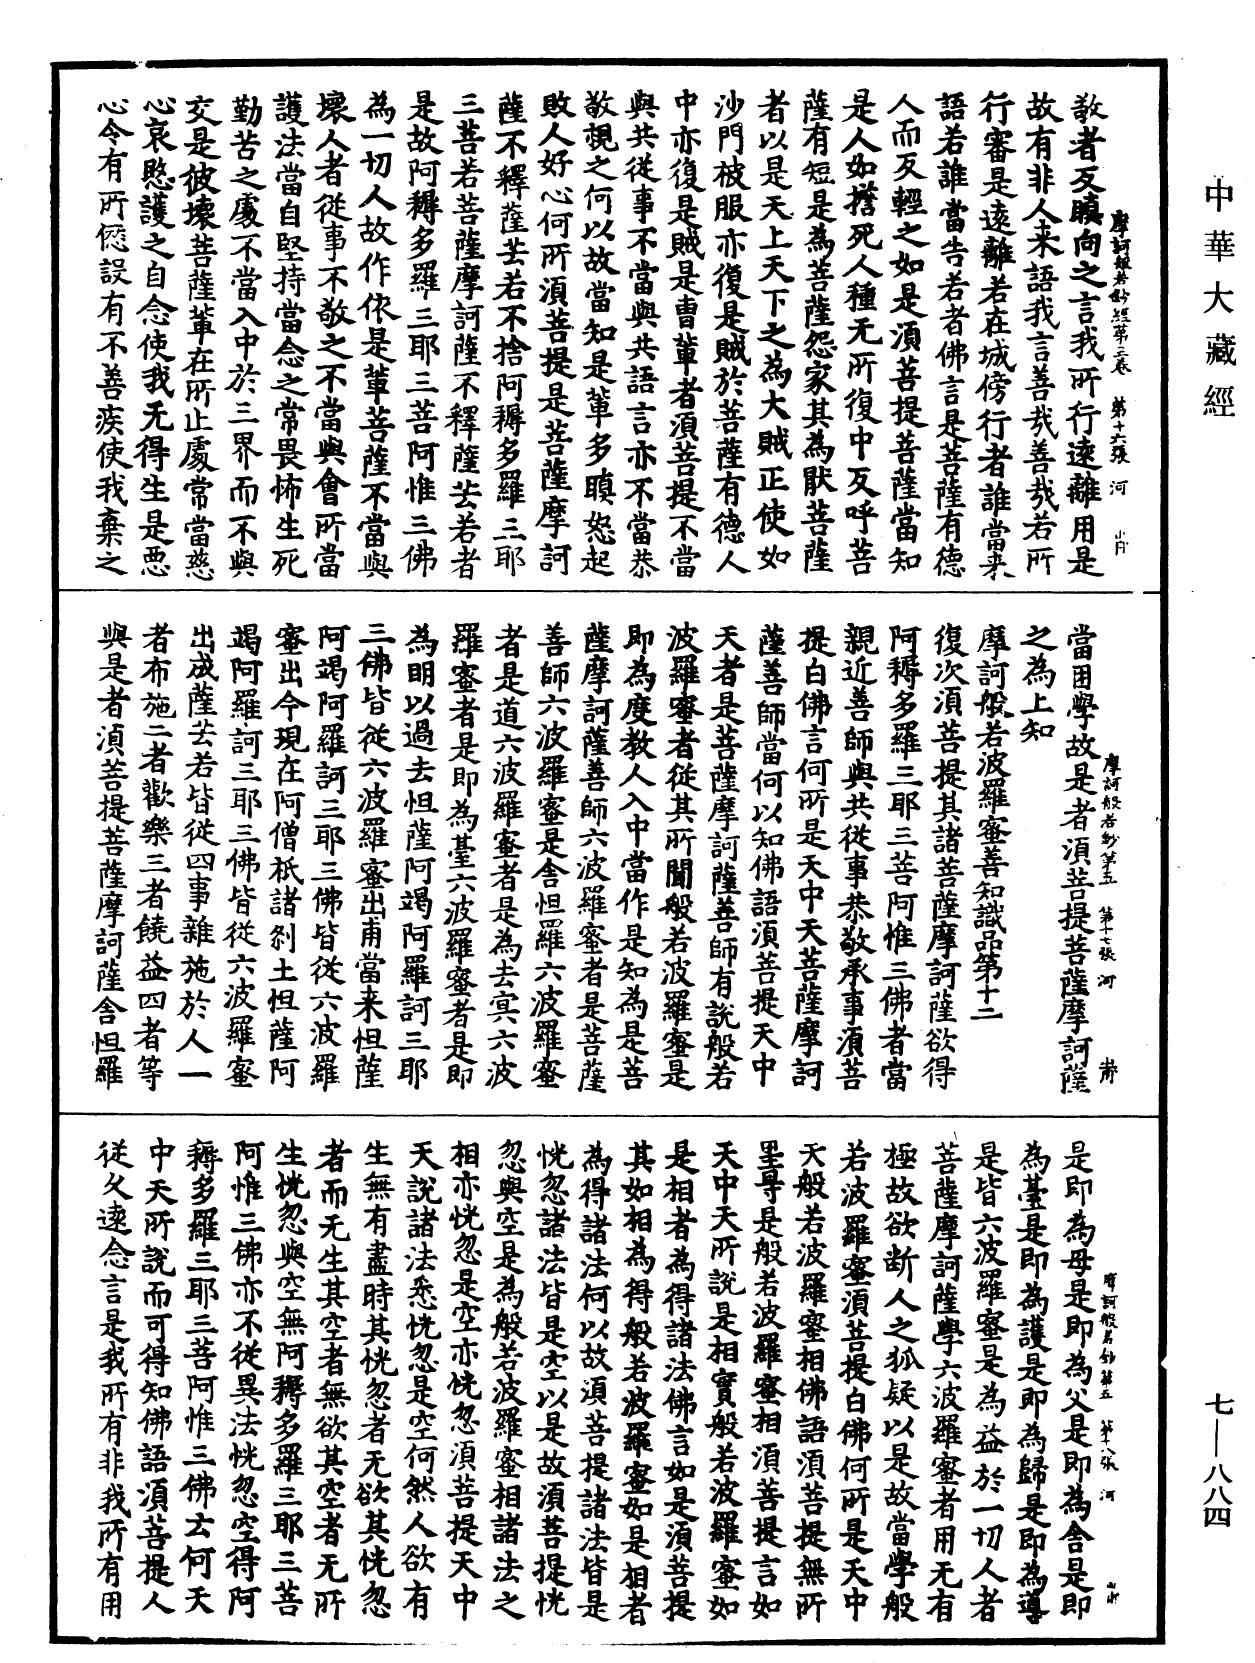 中華大藏經
摩訶般若鈔經第三卷 第十六張 河
敬者反瞋向之言我所行遠離用是
故有非人来語我言善㢤善㢤若所
行審是遠離若在城傍行者誰當来
語若誰當告若者佛言是菩薩有德
人而反輕之如是湏菩提菩薩當知
是人如擔死人種无所復中反呼菩
薩有短是為菩薩怨家其為猒菩薩
者以是天上天下之為大賊正使如
沙門被服亦復是賊於菩薩有德人
中亦復是賊是曹輩者湏菩提不當
與共從事不當與共語言亦不當恭
敬視之何以故當知是輩多瞋怒起
敗人好心何所湏菩提是菩薩摩訶
薩不釋薩芸若不捨阿耨多羅三耶
三菩若菩薩摩訶薩不釋薩芸若者
是故阿耨多羅三耶三菩阿惟三佛
為一切人故作依是輩菩薩不當與
壞人者從事不敬之不當與會所當
護法當自堅持當念之常畏怖生死
勤苦之處不當入中於三界而不與
交是彼壞菩薩輩在所止處常當慈
心哀愍護之自念使我无得生是惡
心令有所㒠設有不善疾使我棄之
摩訶般若鈔第五 第十七張 河
當困學故是者湏菩提菩薩摩訶薩
之為上知
摩訶般若波羅蜜善知識品第十二
復次湏菩提其諸菩薩摩訶薩欲得
阿耨多羅三耶三菩阿惟三佛者當
親近善師與共從事恭敬承事湏菩
提白佛言何所是天中天菩薩摩訶
薩善師當何以知佛語湏菩提天中
天者是菩薩摩訶薩善師有說般若
波羅蜜者從其所聞般若波羅蜜是
即為度教人入中當作是知為是菩
薩摩訶薩善師六波羅蜜者是菩薩
善師六波羅蜜是舍怛羅六波羅蜜
者是道六波羅蜜者是為去冥六波
羅蜜者是即為臺六波羅蜜者是即
為明以過去怛薩阿竭阿羅訶三耶
三佛皆從六波羅蜜出甫當来怛薩
阿竭阿羅訶三耶三佛皆從六波羅
蜜出今現在阿僧祇諸刹土怛薩阿
竭阿羅訶三耶三佛皆從六波羅蜜
出成薩芸若皆從四事雜施於人一
者布施二者歡樂三者饒益四者等
與是者湏菩提菩薩摩訶薩舍怛羅
摩訶般若鈔第五 第十八張 河
是即為母是即為父是即為舍是即
為臺是即為護是即為歸是即為導
是皆六波羅蜜是為益於一切人者
菩薩摩訶薩學六波羅蜜者用无有
極故欲断人之狐疑以是故當學般
若波羅蜜湏菩提白佛何所是天中
天般若波羅蜜相佛語湏菩提無所
罣㝵是般若波羅蜜相湏菩提言如
天中天所說是相實般若波羅蜜如
是相者為得諸法佛言如是湏菩提
其如相為得般若波羅蜜如是相者
為得諸法何以故湏菩提諸法皆是
恍忽諸法皆是空以是故湏菩提恍
忽與空是為般若波羅蜜相諸法之
相亦恍忽是空亦恍忽湏菩提天中
天說諸法悉恍忽是空何然人欲有
生無有盡時其恍忽者无欲其恍忽
者而无生其空者無欲其空者无所
生恍忽與空無阿耨多羅三耶三菩
阿惟三佛亦不從異法恍忽空得阿
耨多羅三耶三菩阿惟三佛云何天
中天所說而可得知佛語湏菩提人
從久遠念言是我所有非我所有用
七—八八四